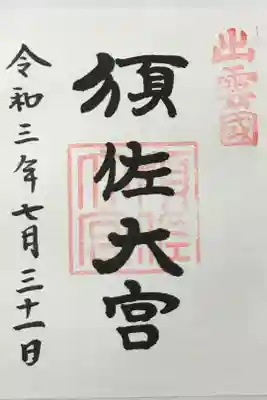 出雲國
須佐大宮
令和三年七月三十一日